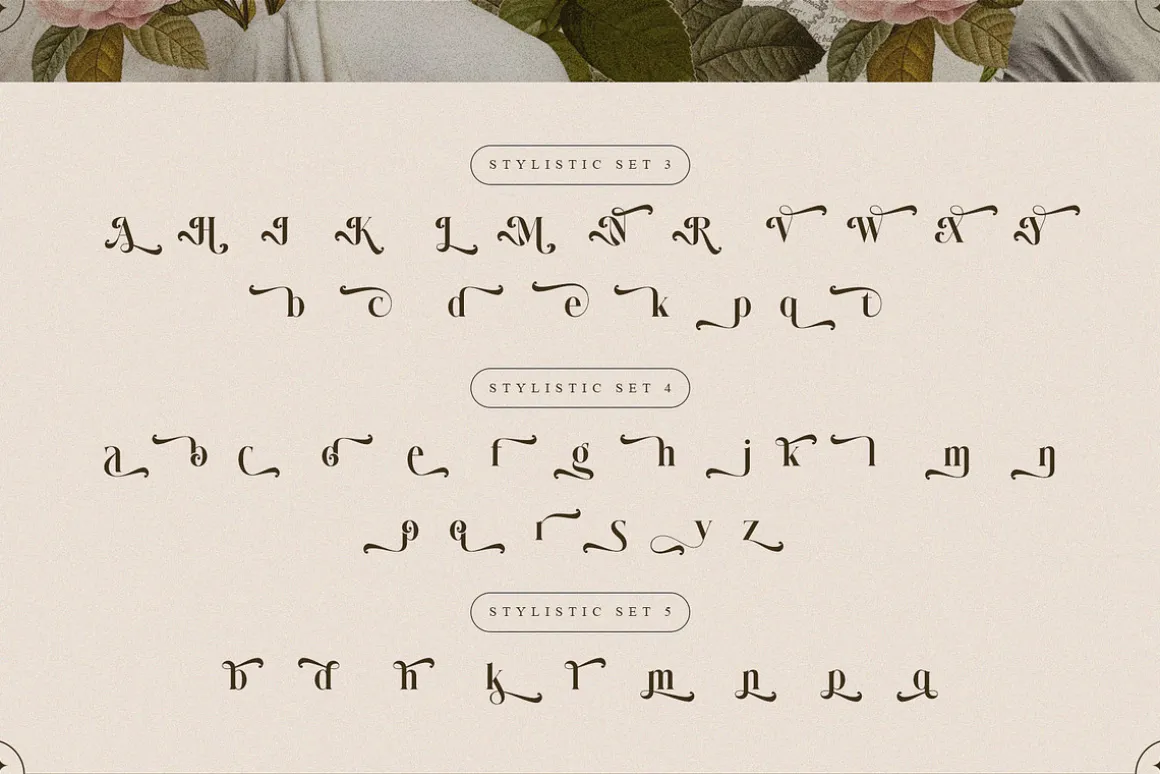 STYLISTIC SET 3
A H I K L M N R V W X Y
b c d e k p q t
STYLISTIC SET 4
a b c d e f g h j k l m n
p q r s y z
STYLISTIC SET 5
b d h k l m n p q